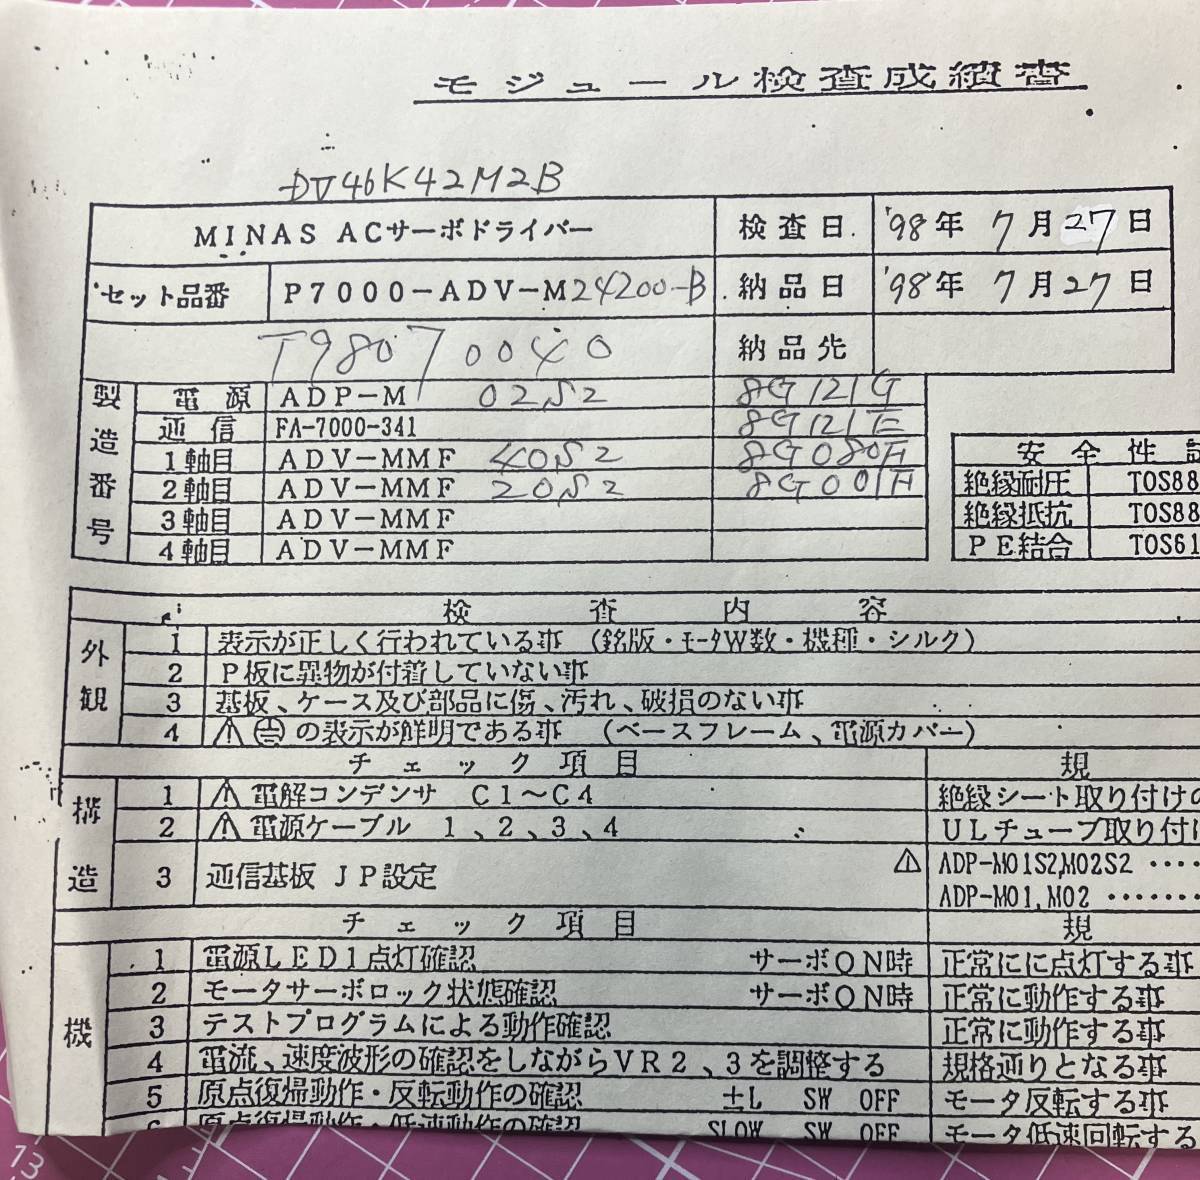 モジュール検査成績書
DV46K42M2B
MINAS ACサーボドライバー 検査日. '98年 7月27日
セット品番 P7000-ADV-M24200-B 納品日 '98年 7月27日
T98070040 納品先
製造番号
電源 ADP-M 02S2 8G121G
通信 FA-7000-341 8G121E
1軸目 ADV-MMF 40S2 8G080F
2軸目 ADV-MMF 20S2 8G001F
3軸目 ADV-MMF
4軸目 ADV-MMF
安全性試
絶縁耐圧 TOS88
絶縁抵抗 TOS88
PE結合 TOS61
検査内容
外観
1 表示が正しく行われている事 (銘版・モータW数・機種・シルク)
2 P板に異物が付着していない事
3 基板、ケース及び部品に傷、汚れ、破損のない事
4 の表示が鮮明である事 (ベースフレーム、電源カバー)
チェック項目 規
構造
1 電解コンデンサ C1~C4 絶縁シート取り付けの
2 電源ケーブル 1、2、3、4 ULチューブ取り付け
3 通信基板 JP設定 ADP-M01S2,M02S2 ‥‥
ADP-M01,M02 ‥‥‥
チェック項目 規
機
1 電源LED1点灯確認 サーボON時 正常にに点灯する事
2 モータサーボロック状態確認 サーボON時 正常に動作する事
3 テストプログラムによる動作確認 正常に動作する事
4 電流、速度波形の確認をしながらVR2、3を調整する 規格通りとなる事
5 原点復帰動作・反転動作の確認 ±L SW OFF モータ反転する事
6 原点復帰動作・低速動作の確認 SLOW SW OFF モータ低速回転する
13